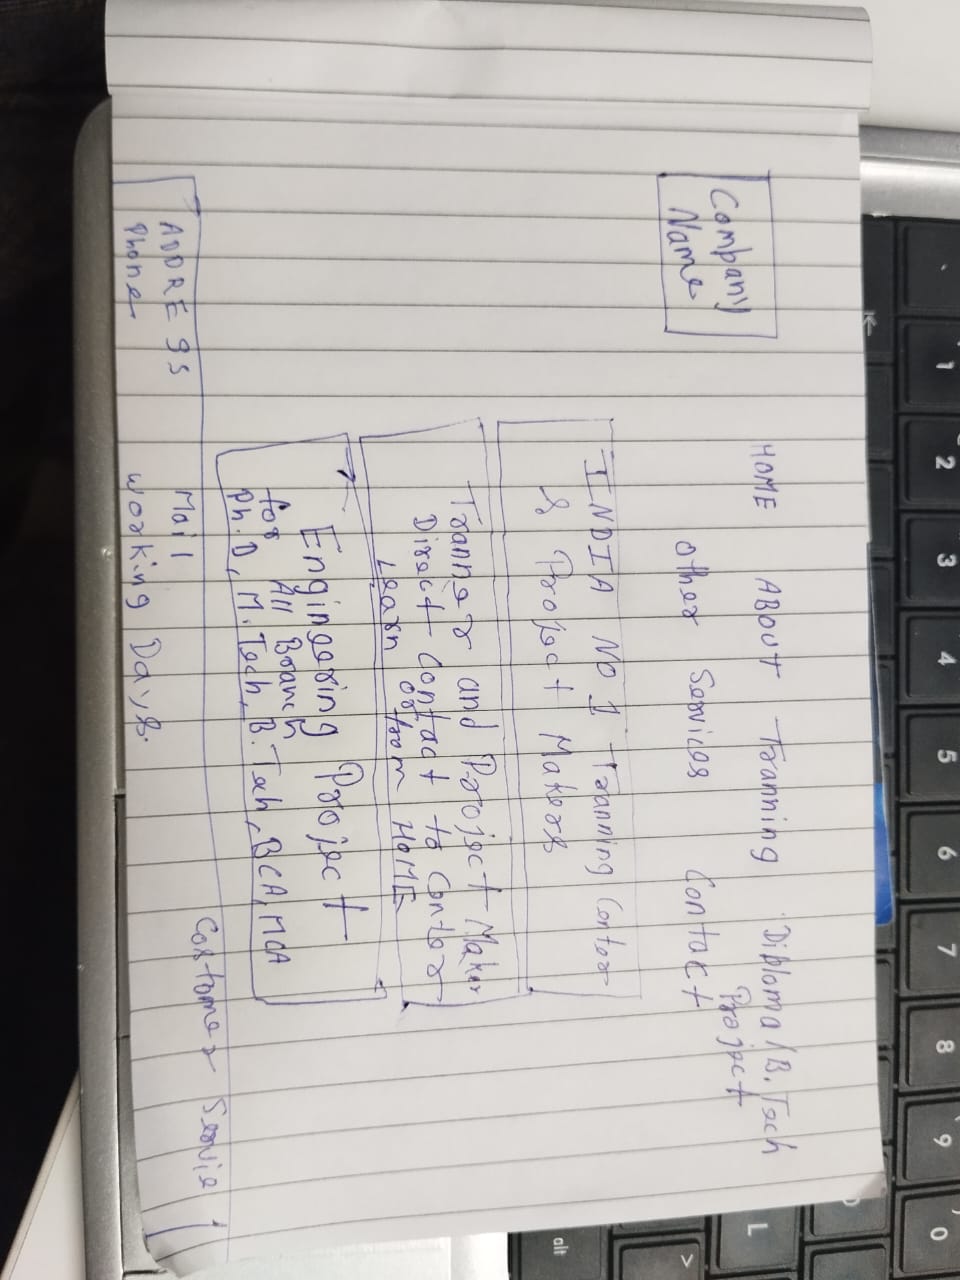 Company
Name
HOME ABOUT Tranning Dibloma/B.Tech
Project
other Services Contact
INDIA NO 1 Tranning Center
& Project Makers
Tranner and Project Maker
Direct Contact to Center
Learn from HOME
Engineering Project
for All Branch
Ph.D, M.Tech, B.Teh, BCA, MCA
ADDRESS Mail Costomer Servie
Phone working Days.